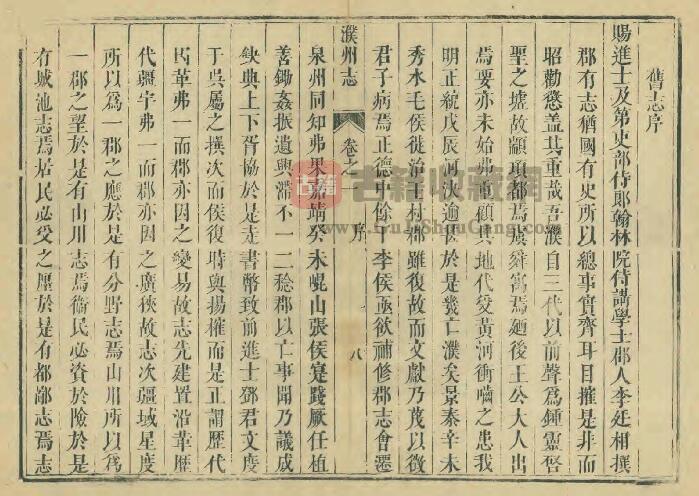 舊志序
賜進士及第吏部侍郎翰林院侍講學士郡人李廷相撰
郡有志猶國有史所以總事實齊耳目摧是非而
昭勸懲蓋其重哉吾濮自三代以前聲為鍾靈啓
聖之墟故顓頊都焉虞舜寓焉廼後王公大人出
焉要亦未始弗重顧其地代受黃河衝嚙之患我
明正統戊辰河決逾於是幾亡濮矣景泰辛未
秀水毛侯徙治王村郡雖復故而文獻乃茂以徵
君子病焉正德中餘李侯亟欲補修郡志會遷
濮州志 卷之 序 八
泉州同知弗果嘉靖癸未崐山張侯寔踐厥任植
善鋤姦振遺興滯不一二稔郡以亡事聞乃議成
鈌典上下胥協於是走書幣致前進士鄧君文度
于吳屬之撰次而侯復時與揚搉而是正謂歷代
因革弗一而郡亦因之變易故志先建置沿革歷
代疆宇弗一而郡亦因之廣狹故志次疆域星度
所以為一郡之應於是有分野志焉山川所以為
一郡之望於是有山川志焉衞民必資於險於是
有城池志焉居民必受之廛於是有都鄙志焉志
古籍收藏网
www.GuJiShouCang.com